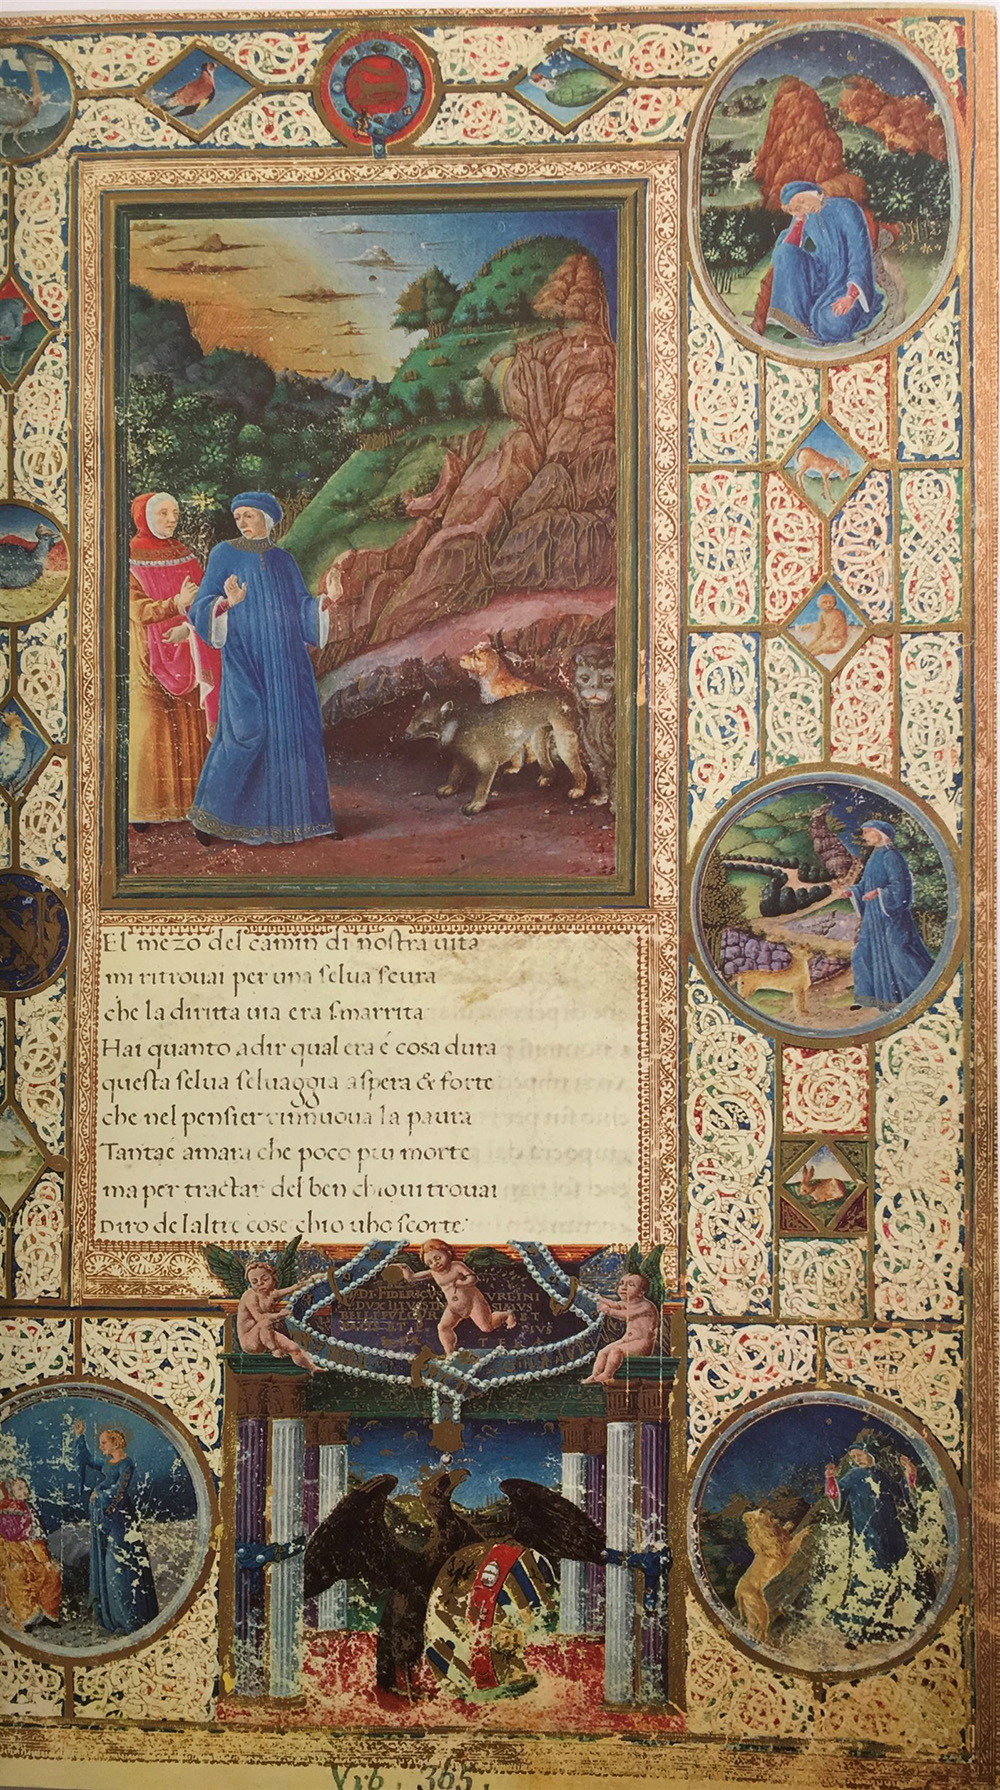 El mezo del camin di nostra uita
mi ritrouai per una selua scura
che la diritta uia era smarrita
Hai quanto adir qual era é cosa dura
questa selua seluaggia aspera & forte
che nel pensier rinnuoua la paura
Tantaé amara che poco piu morte
ma per tractar del ben chioui trouai
Diro de laltre cose chio uho scorte.
DI. FIDERICVS VRBINI
DVX ILLVSTRISSIMVS
BELLI FVLGVR ET
PIVS
Vrb. 365.